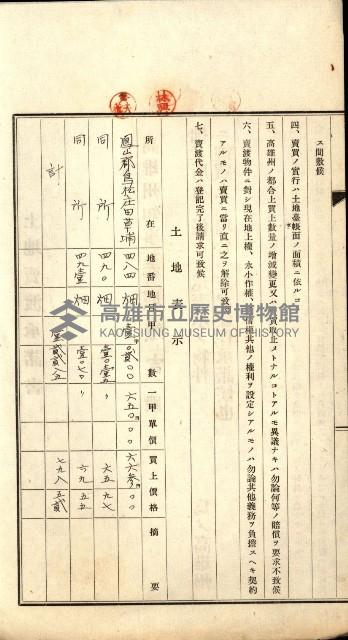 ス間敷候
四、賣買ノ實行ハ土地臺帳面ノ面積ニ依ルコト
五、高雄州ノ都合上買上數量ノ増減變更又ハ買取止メトナルコトアルモ異議ナキハ勿論何等ノ賠償ヲ要求不致候
六、賣渡物件ニ對シ現在地上權、永小作權、其他ノ權利ヲ設定シアルモノハ勿論其他義務ヲ負擔スヘキ契約
アルモノハ賣買ニ當リ直ニ之ヲ解除可致
七、賣渡代金ハ登記完了後請求可致候
土地表示
所在 地番 地目 甲數 一甲單價 買上價格 摘要
鳳山郡鳥松庄田草埔 四八四 畑 六五〇 〇〇
同所 四九〇 畑 六五九七
同所 四九壹 畑 壹〇七〇 六九五五
計 七九八五貳
高雄市立歷史博物館
KAOHSIUNG MUSEUM OF HISTORY